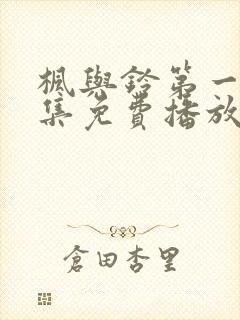 楓與鈴第一
集免費播放
倉田杏里